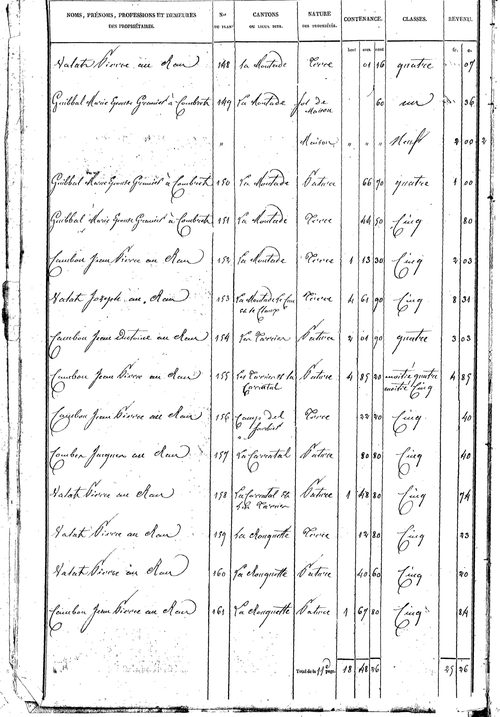 NOMS, PRÉNOMS, PROFESSIONS ET DEMEURES DES PROPRIÉTAIRES. Nos DU PLAN CANTONS OU LIEUX DITS. NATURE DES PROPRIÉTÉS. CONTENANCE. CLASSES. REVENU.
hect. ares. cent. fr. c.
Valat Pierre au Mau 148 La Montade Terre 01 16 quatre 07
Guibbal Marie Epouse Granier à Combret 149 La Montade sol de Maison 60 un 36
" Maison " " " Neuf 2 00
Guibbal Marie Epouse Granier à Combret 150 La Montade Pature 66 70 quatre 1 00
Guibbal Marie Epouse Granier à Combret 151 La Montade Terre 44 50 Cinq 80
Cambon Jean Pierre au Mau 152 La Montade Terre 1 13 30 Cinq 2 03
Valat Joseph au Mau 153 La Montade Terre 4 61 90 Cinq 8 31
Cambon Jean au Mau 154 Pature 2 01 90 quatre 3 03
Cambon Jean Pierre au Mau 155 et la Carratal Pature 4 85 20 moitié quatre moitié Cinq 4 85
Cambon Jean Pierre au Mau 156 Camp del Terre 22 20 Cinq 40
Cambon Jacques au Mau 157 La Carratal Pature 80 80 Cinq 40
Valat Pierre au Mau 158 La Carratal et Pature 1 48 80 Cinq 74
Valat Pierre au Mau 159 La Rouquette Terre 12 80 Cinq 23
Valat Pierre au Mau 160 La Rouquette Pature 40 60 Cinq 20
Cambon Jean Pierre au Mau 161 La Rouquette Pature 1 67 80 Cinq 84
Total de la 11e page 18 48 26 25 26